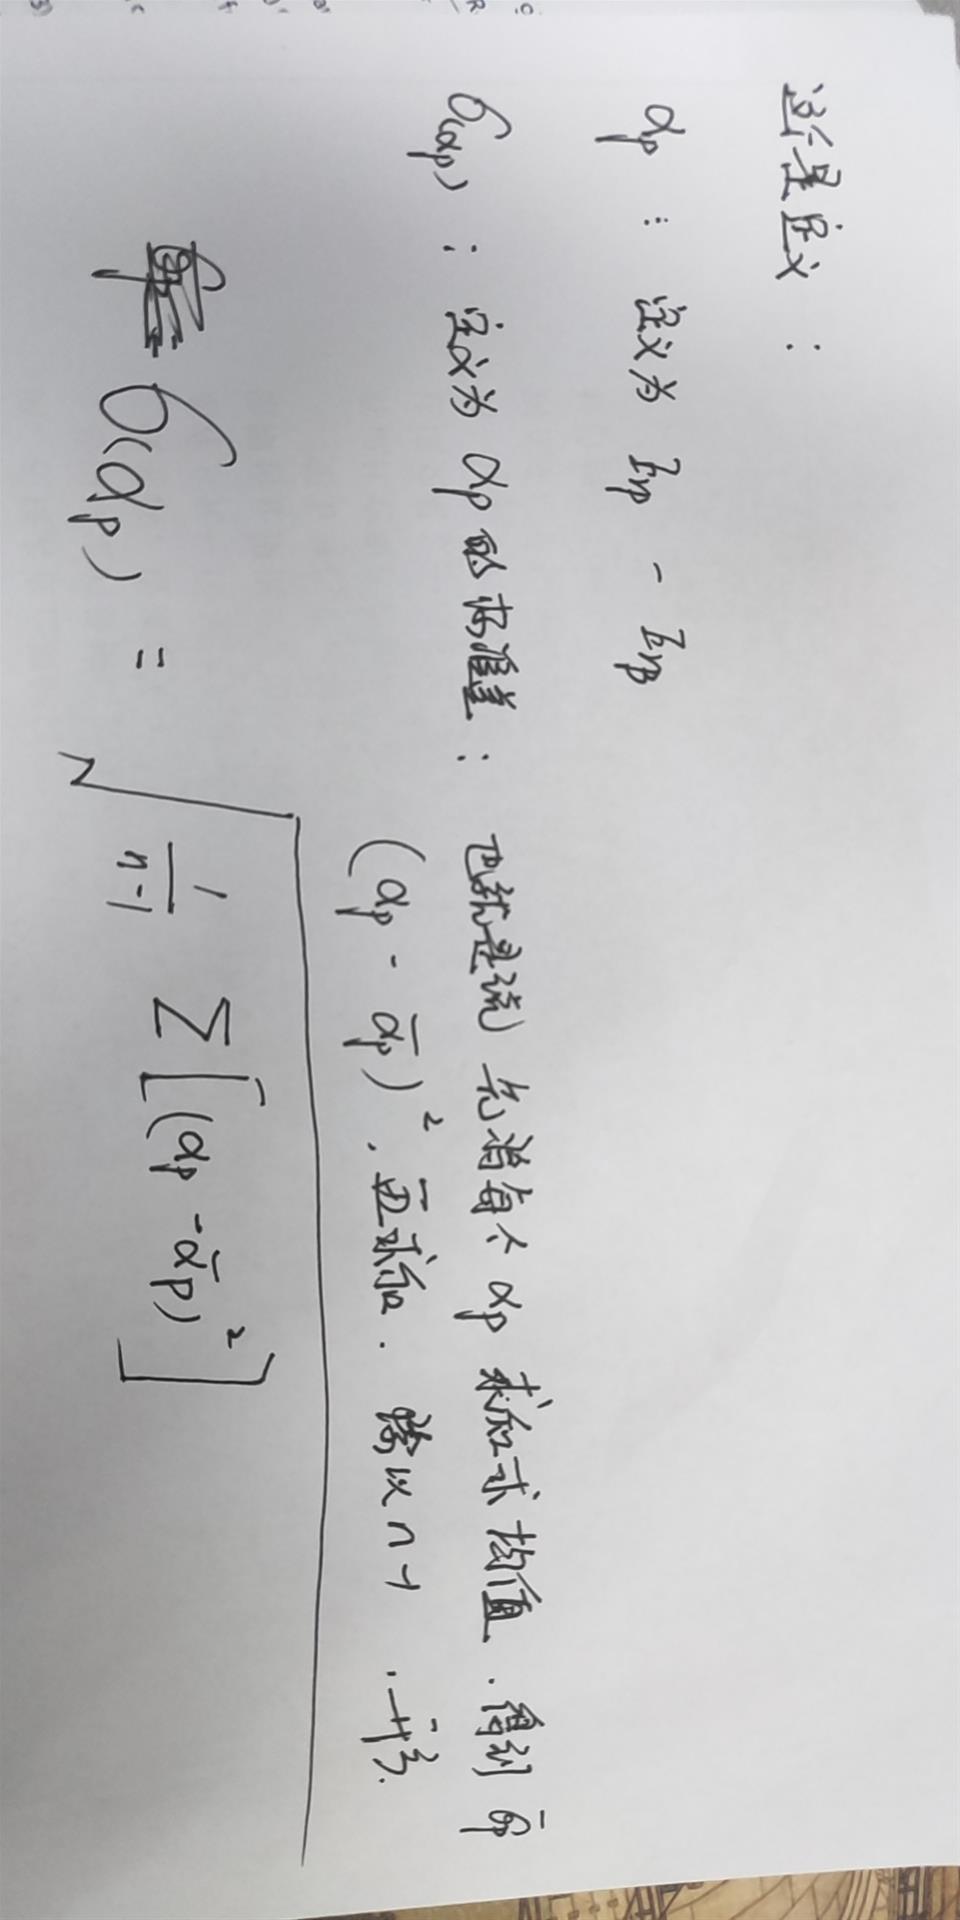 这是定义:
αp : 定义为 Irp - Irβ
σ(αp) : 定义为 αp 的标准差: 也就是说 先将每个 αp 求和求均值, 得到 ᾱp
(αp - ᾱp)², 再求和. 除以 n-1, 开方.
σ(αp) = √ 1/(n-1) Σ[(αp - ᾱp)²]